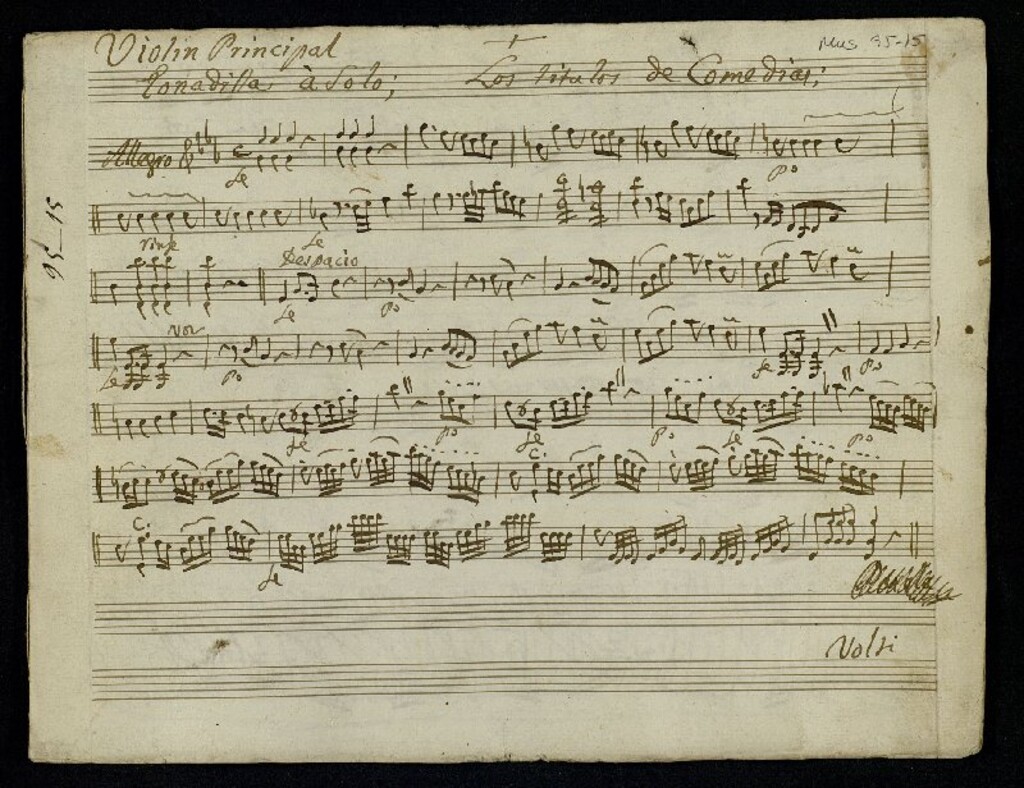 Violin Principal
Mus 95-15
Tonadilla à Solo; Los titulos de Comedias;
Allegro
fe
Po
95-15
rinfe
fe
Despacio
fe
Po
voz
fe
Po
fe
Po
fe
Po
fe
Po
fe
Po
fe
Po
C.
C.
fe
Volti